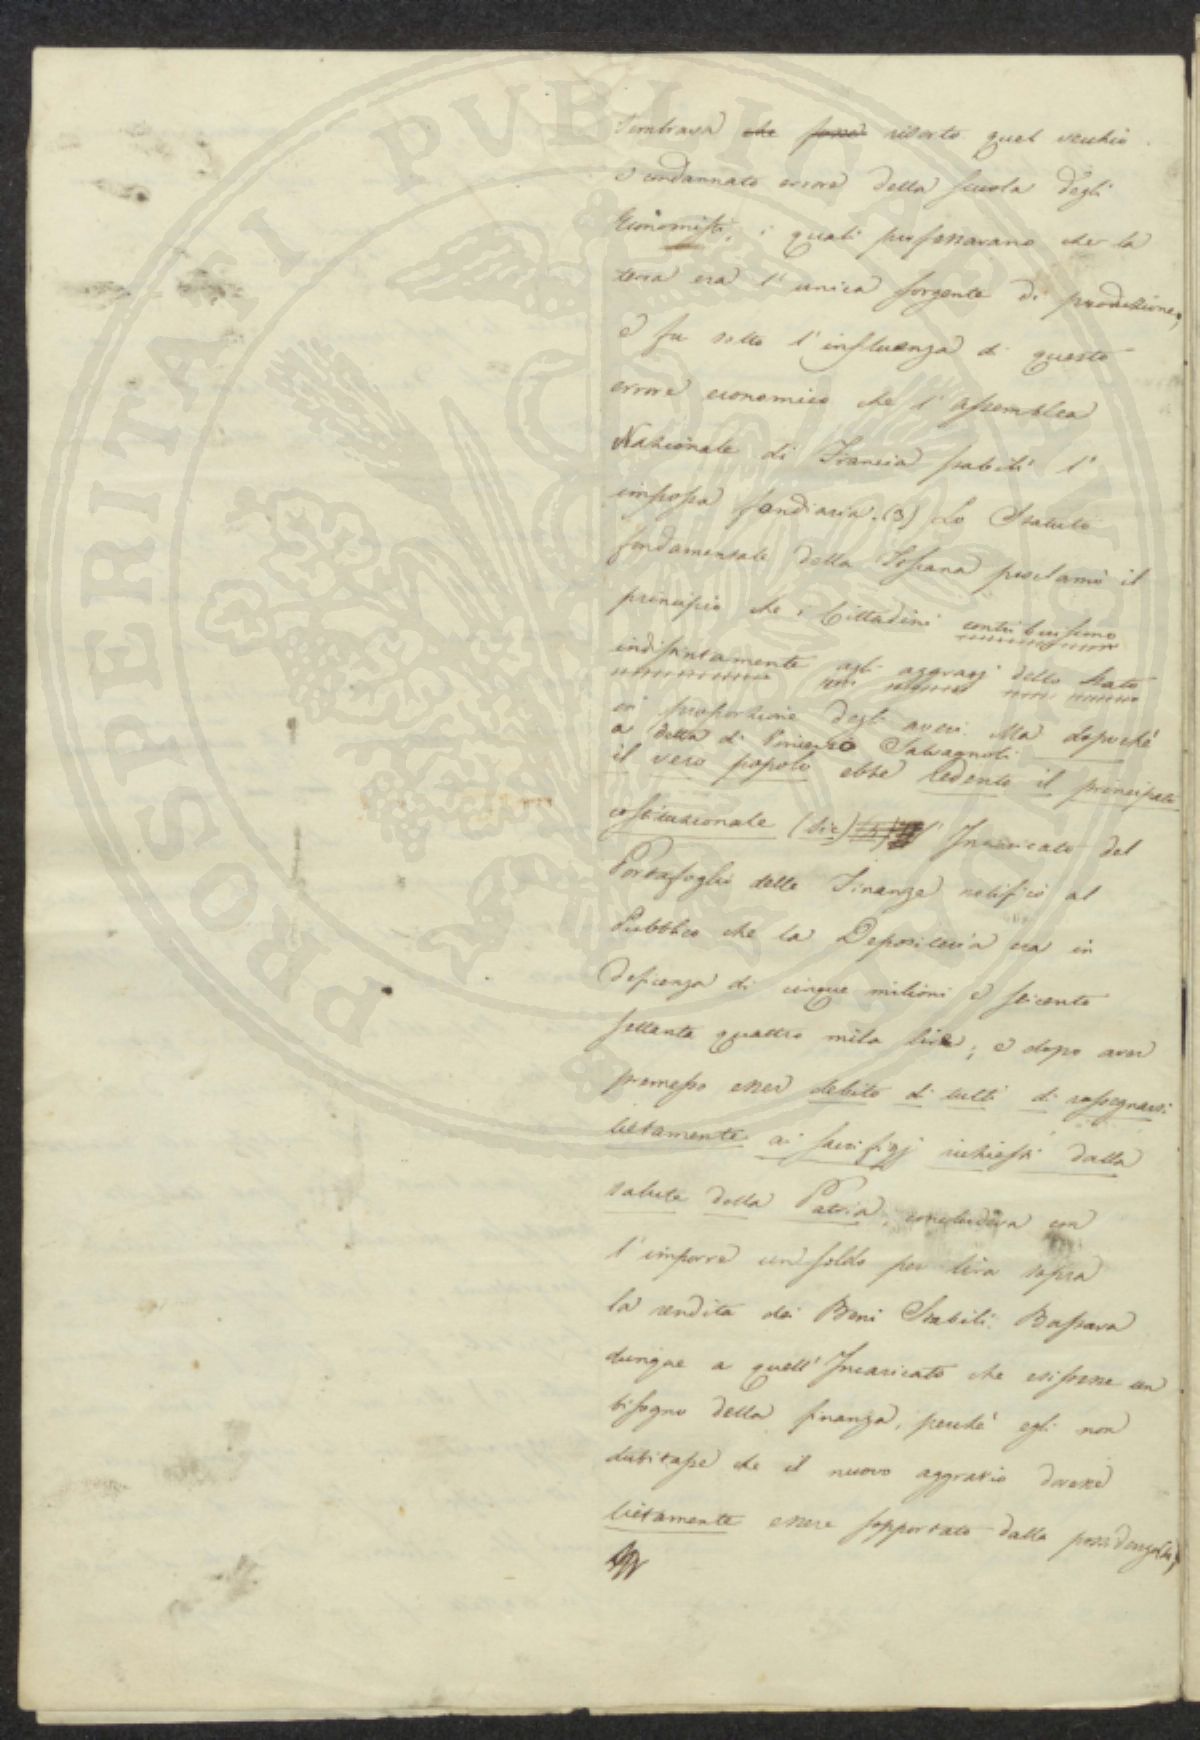 sembrava che fosse risorto quel vecchio
e condannato errore della scuola degli
Economisti, i quali professarono che la
terra era l'unica sorgente di produzione,
e fu sotto l'influenza di questo
errore economico che l'assemblea
Nazionale di Francia stabilì l'
imposta fondiaria. (3) Lo Statuto
fondamentale della Toscana proclamò il
principio che i Cittadini contribuissero
indistintamente agli aggravj dello Stato
in proporzione degli averi. Ma dopochè
a detta di Vincenzo Salvagnoli
il vero popolo ebbe redento il principato
costituzionale (sic) l'Incaricato del
Portafoglio delle Finanze notificò al
Pubblico che la Depositeria era in
deficenza di cinque milioni e seicento
settanta quattro mila lire; e dopo aver
premesso esser debito di tutti di rassegnarsi
lietamente ai sacrifizj richiesti dalla
salute della Patria, concludeva con
l'imporre un soldo per lira sopra
la rendita dei Beni Stabili. Bastava
dunque a quell'Incaricato che esistesse un
bisogno della finanza, perchè egli non
dubitasse che il nuovo aggravio dovesse
lietamente essere sopportato dalla possidenza,
PROSPERITATI PVBLICAE